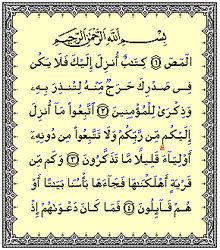 بِسْمِ ٱللَّهِ ٱلرَّحْمَٰنِ ٱلرَّحِيمِ
الٓمٓصٓ ﴿١﴾ كِتَٰبٌ أُنزِلَ إِلَيْكَ فَلَا يَكُن
فِى صَدْرِكَ حَرَجٌ مِّنْهُ لِتُنذِرَ بِهِۦ
وَذِكْرَىٰ لِلْمُؤْمِنِينَ ﴿٢﴾ ٱتَّبِعُوا۟ مَآ أُنزِلَ
إِلَيْكُم مِّن رَّبِّكُمْ وَلَا تَتَّبِعُوا۟ مِن دُونِهِۦٓ
أَوْلِيَآءَ قَلِيلًا مَّا تَذَكَّرُونَ ﴿٣﴾ وَكَم مِّن
قَرْيَةٍ أَهْلَكْنَٰهَا فَجَآءَهَا بَأْسُنَا بَيَٰتًا أَوْ
هُمْ قَآئِلُونَ ﴿٤﴾ فَمَا كَانَ دَعْوَىٰهُمْ إِذْ